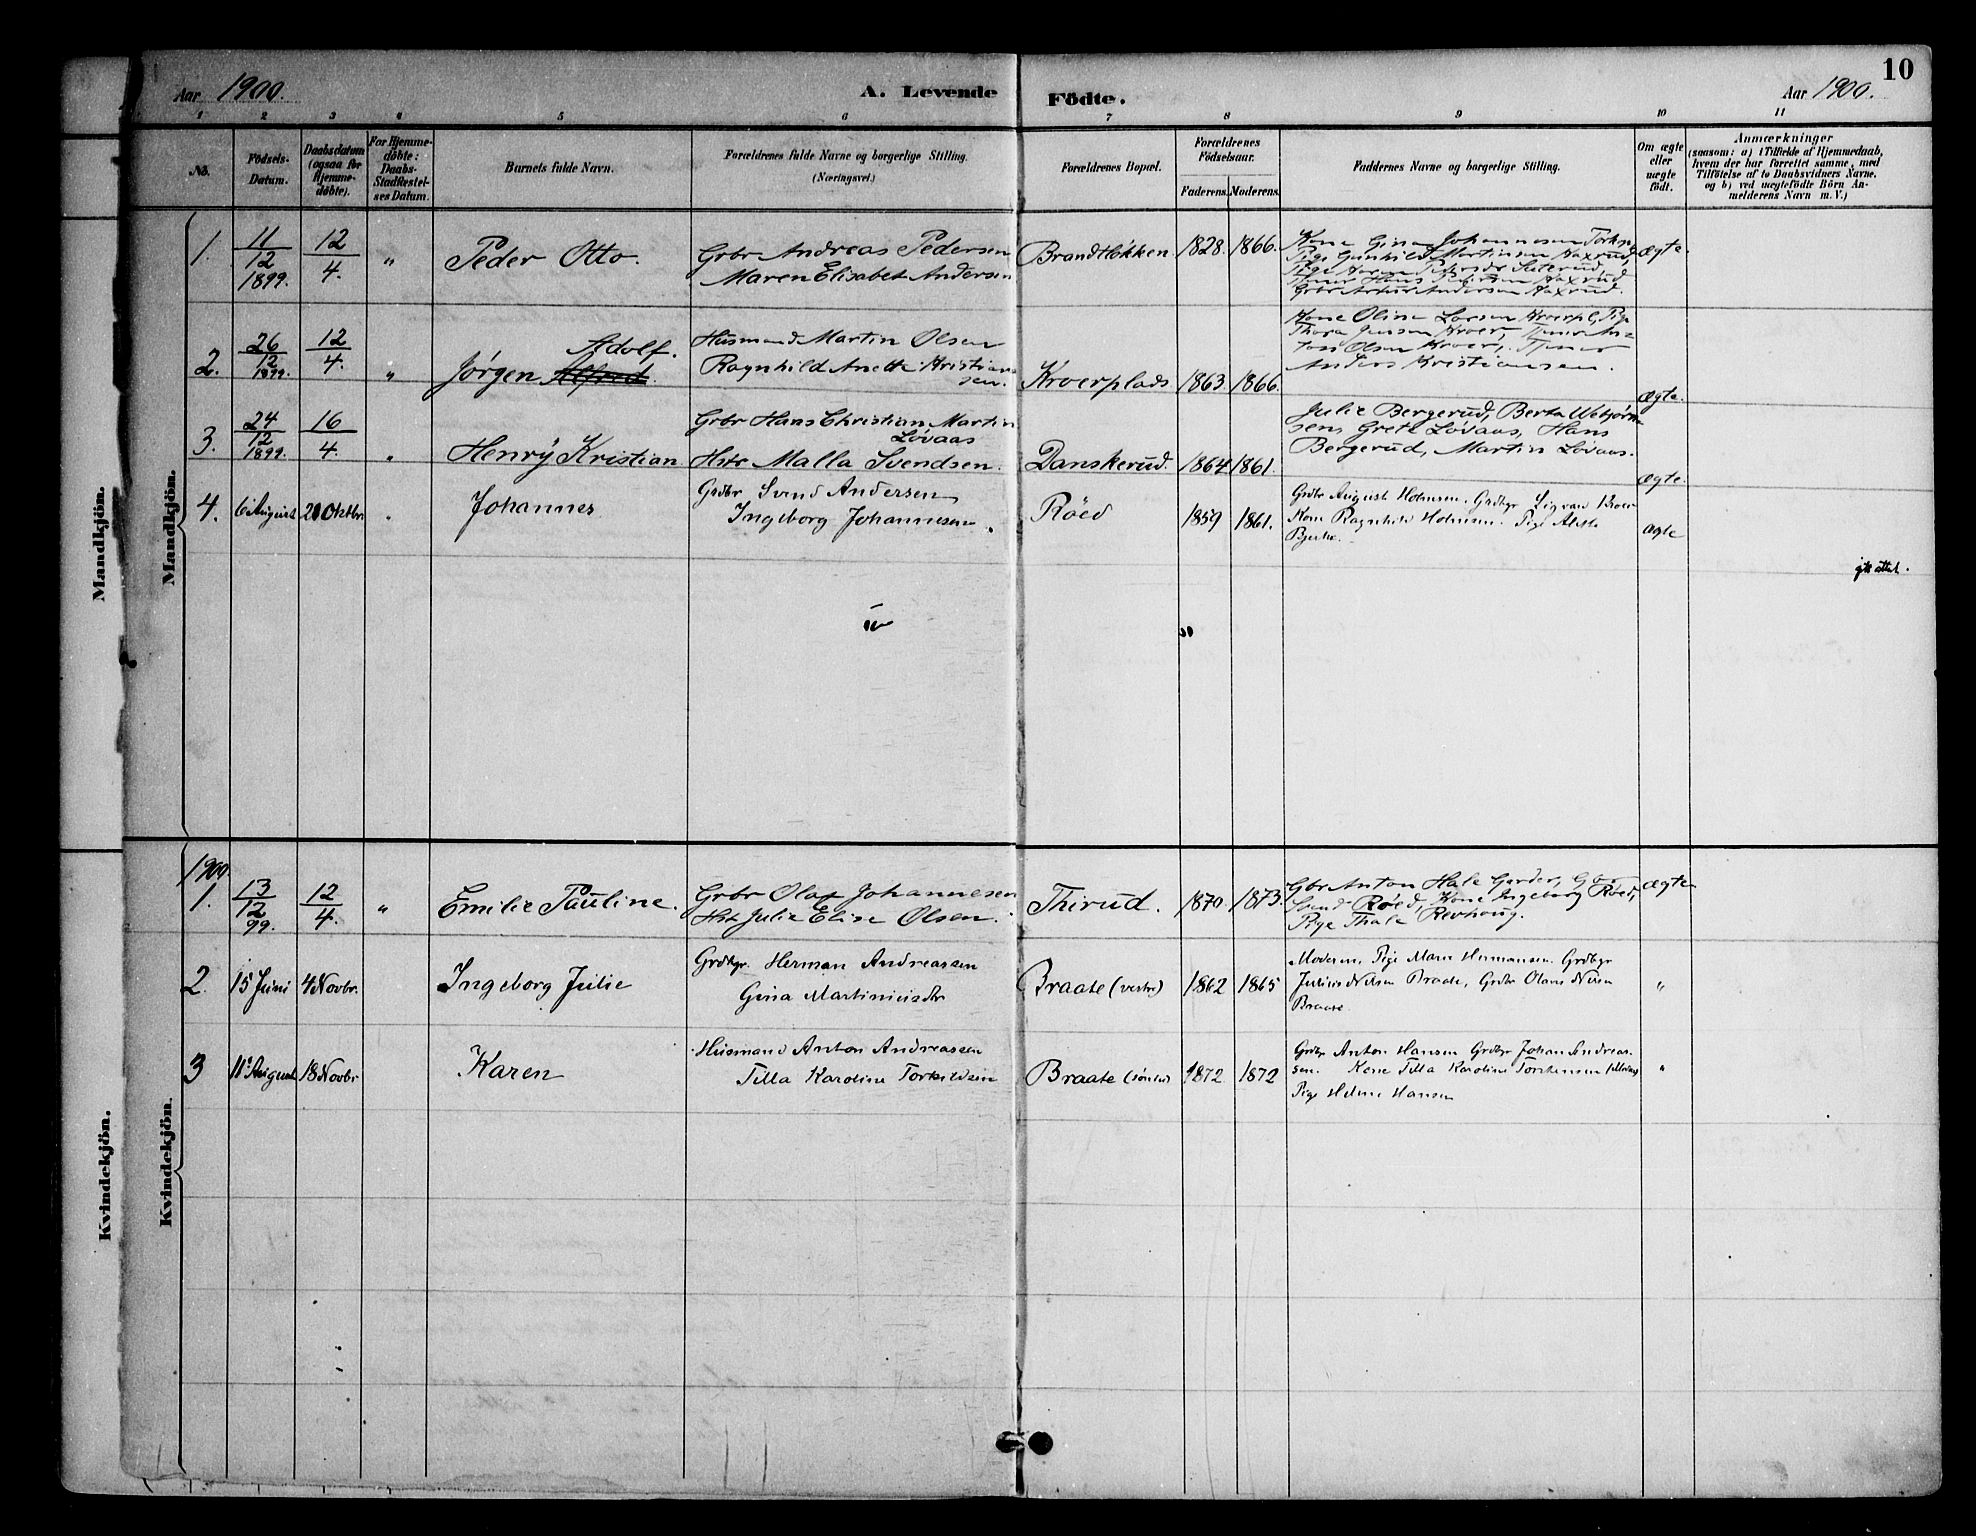 10
Aar 1900.
A. Levende
Födte.
Aar 1900.
1 2 3 4 5 6 7 8 9 10 11
No.
Födsels-
Datum.
Daabsdatum
(ogsaa for
Hjemme-
döbte).
For Hjemme-
döbte:
Daabs-
Stadfæstel-
ses Datum.
Barnets fulde Navn.
Forældrenes fulde Navne og borgerlige Stilling.
(Næringsvei.)
Forældrenes Bopæl.
Forældrenes
Födselsaar.
Faderens. Moderens.
Faddernes Navne og borgerlige Stilling.
Om ægte
eller
uægte
födt.
Anmærkninger
(saasom: a) i Tilfælde af Hjemmedaab,
hvem der har forrettet samme, med
Tilföielse af to Daabsvidners Navne.
og b) ved uægtefödte Börn An-
melderens Navn m. V.)
Mandkjön.
Mandkjön.
1. 11/12 1899. 12/4. " Peder Otto.
Grbr Andreas Pedersen
Maren Elisabet Andersen
Brandtløkken 1828. 1866.
Kone Gina Johannesen
Pige Gunhild Martinsen Aaxrud,
Hans Aaxrud
Grbr Artur Andersen Aaxrud.
Ægte.
2. 26/12 1899. 12/4. " Adolf.
Jørgen Alfred.
Husmand Martin Olsen
Ragnhild Anette Kristian-
sen.
Kroerplads 1863. 1866.
Kone Oline Larsen Kroerpl, Pige
Thora Jensen Kroer, Tjener An-
ton Olsen Kroer, Tjener
Anders Kristiansen.
ægte.
3. 24/12 1899. 16/4. " Henrÿ Kristian.
Grbr Hans Christian Martin
Løvaas
Hstr Malla Svendsen.
Danskerud. 1864 1861.
Julie Bergerud, Berta Webjørn-
sens Grete Løvaas, Hans
Bergerud, Martin Løvaas.
ægte.
4. 6 August 21 Oktbr. Johannes
Grdbr Svend Andersen
Ingeborg Johannesen.
Røed 1859 1861.
Grdbr August Holmsen. Grdbgr Sigvart Kroer
Kone Ragnhild Holmsen. Pige
Bjerke.
ægte
Kvindekjön.
Kvindekjön.
1900.
1. 13/12 99. 12/4. " Emilie Pauline.
Grbr Olaf Johannesen
Hst Julie Elise Olsen.
Thirud. 1870. 1873.
Gbr Anton Hale Garder, Gbr
Svend Røed, Kone Ingeborg Røed,
Pige Thale Revhoug.
Ægte
2. 15 Juni 4 Novbr. Ingeborg Julie
Grdbgr Herman Andreassen
Gina Martiniusdtr
Braate (vestre) 1862 1865
Moderen, Pige Marie Hermansen. Grdbgr
Julius Nilsen Braate, Grdbr Olaus Nilsen
Braate.
"
3 11 August 18 Novbr Karen
Husmand Anton Andreassen
Tilla Karoline Torkildsen
Braate (søndre) 1872 1872
Grdbr Anton Hansen Grdbgr Johan Andreas-
sen. Kone Tilla Karoline
Pige Helene Hansen
"